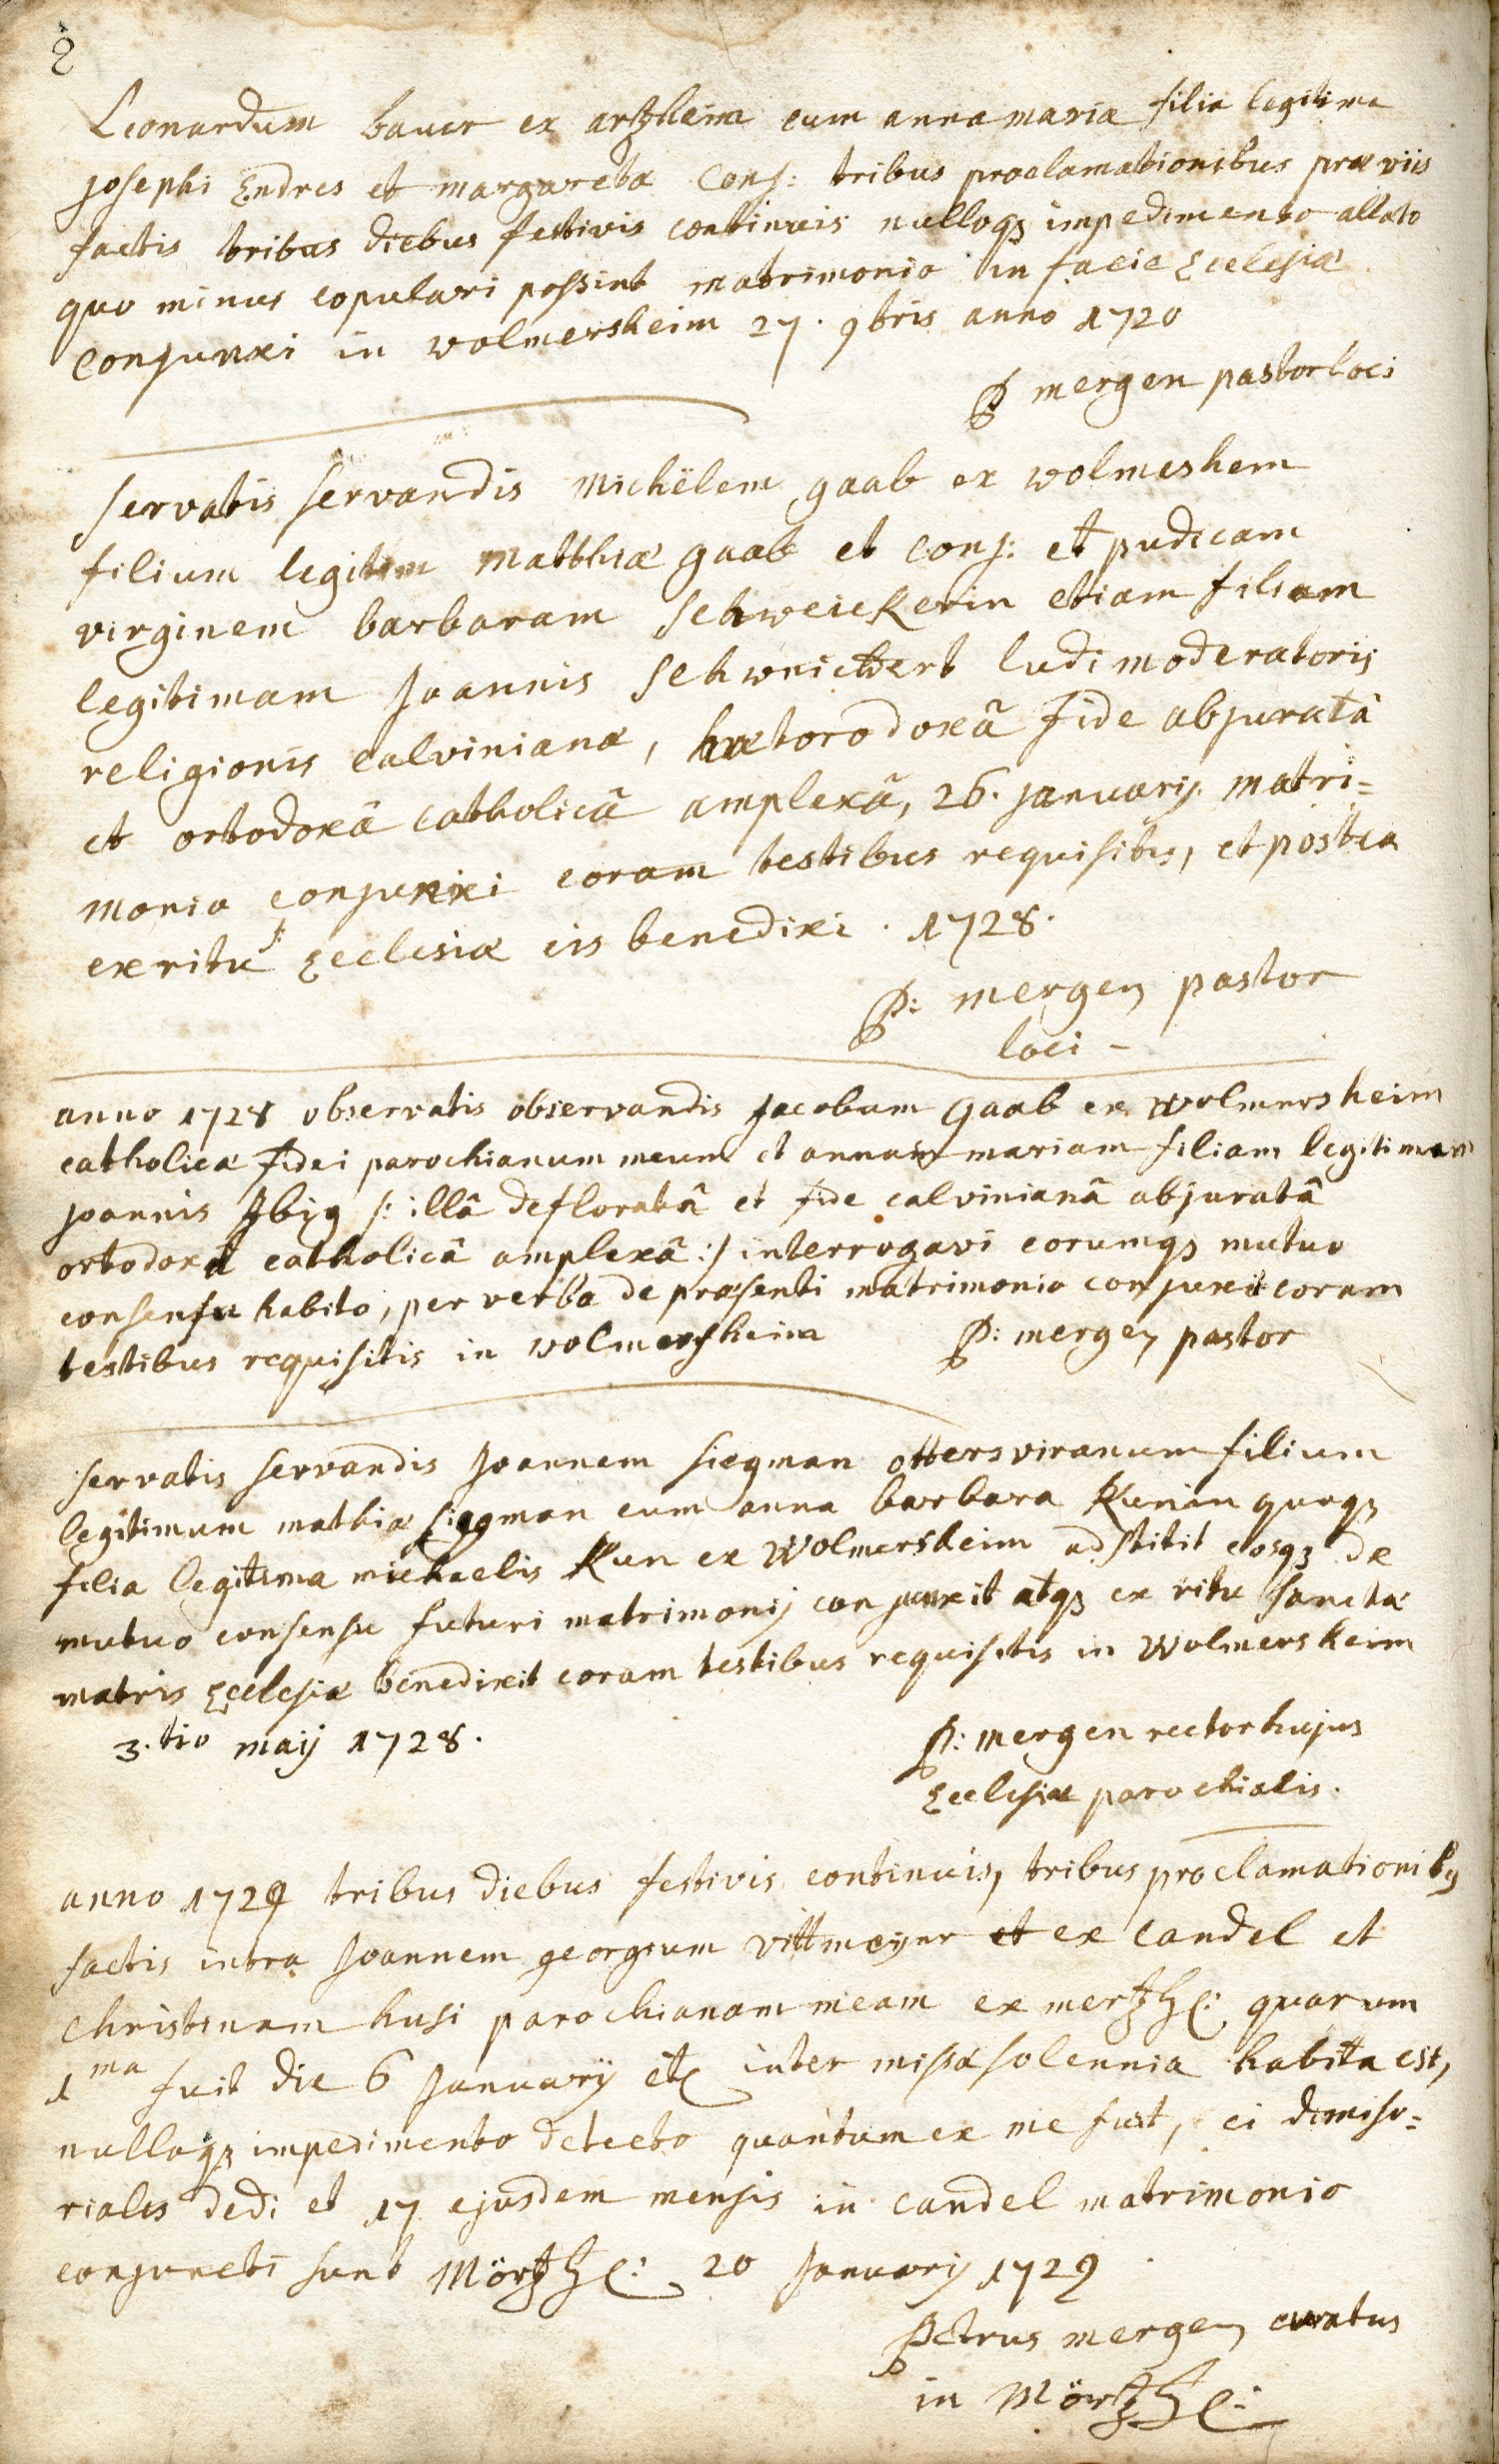 2
Leonardum bauer ex artzheim cum anna maria filia legitima
josephi Endres et margareta conj: tribus proclamationibus præviis
factis tribus diebus festivis continuis nulloqꝫ impedimento allato
quo minus copulari possint matrimonio in facie Ecclesiæ
conjunxi in wolmersheim 27. 9bris anno 1720
P mergen pastor loci
servatis servandis Michëlem gaab ex wolmeshem
filium legitim Matthiæ gaab et conj: et pudicam
virginem barbaram schweickerin etiam filiam
legitimam Joannis Schweickert ludimoderatoris
religionis calvinianæ, hætorodoxâ fide abjuratâ
et ortodoxâ catholicâ amplexâ, 26. januarij matri=
monio conjunxi coram testibus requisitis, et postea
ex ritu S: Ecclesiæ eis benedixi. 1728.
P: mergen pastor
loci -
anno 1728 observatis observandis Jacobum Gaab ex wolmersheim
catholicæ fidei parochianum meum et annam mariam filiam legitimam
joannis Jbig /: illâ defloratâ et fide calvinianâ abjuratâ
ortodoxâ catholicâ amplexâ :/ interrogavi eorumqꝫ mutuo
consensu habito, per verba de præsenti matrimonio conjunxi coram
testibus requisitis in wolmersheim P: mergen pastor
servatis servandis Joannem siegman ottersviranum filium
legitimum mathiæ siegman cum anna barbara Kunian quoqꝫ
filia legitima michaelis Kun ex Wolmersheim adstitit eosqꝫ de
mutuo consensu futuri matrimonij conjunxit atqꝫ ex ritu sanctæ
matris Ecclesiæ benedixit coram testibus requisitis in Wolmersheim
3.tio maij 1728.
P: mergen rector hujus
Ecclesiæ parochialis.
anno 1729 tribus diebus festivis continuis, tribus proclamationibꝫ
factis intra Joannem georgium vittmeyer et ex candel et
christinam husi parochianam meam ex mertzh: quarum
1ma fuit die 6 Januarij etc inter missæ solennia habita est,
nulloqꝫ impedimento detecto quantum ex me fuit, ei dimiso=
riales dedi et 17 ejusdem mensis in candel matrimonio
conjuncti sunt Mörtzh: 20 Januarij 1729
Petrus mergen curatus
in Mörtzh: